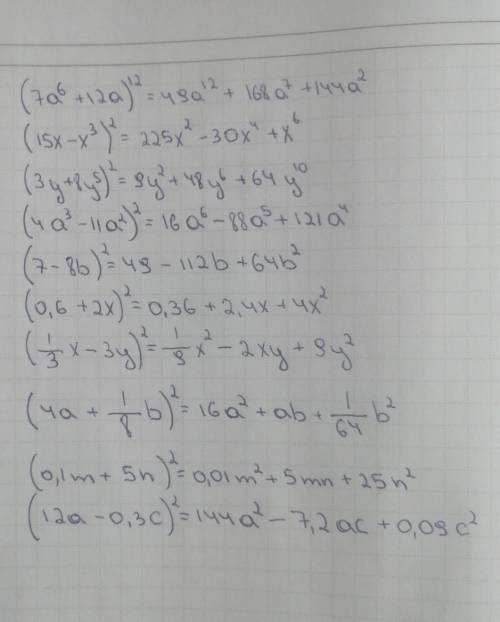 (7a⁶ + 12a)¹² = 49a¹² + 168a⁷ + 144a²
(15x - x³)² = 225x² - 30x⁴ + x⁶
(3y + 8y⁵)² = 9y² + 48y⁶ + 64y¹⁰
(4a³ - 11a²)² = 16a⁶ - 88a⁵ + 121a⁴
(7 - 8b)² = 49 - 112b + 64b²
(0,6 + 2x)² = 0,36 + 2,4x + 4x²
(1/3 x - 3y)² = 1/9 x² - 2xy + 9y²
(4a + 1/8 b)² = 16a² + ab + 1/64 b²
(0,1m + 5n)² = 0,01m² + 5mn + 25n²
(12a - 0,3c)² = 144a² - 7,2ac + 0,09c²